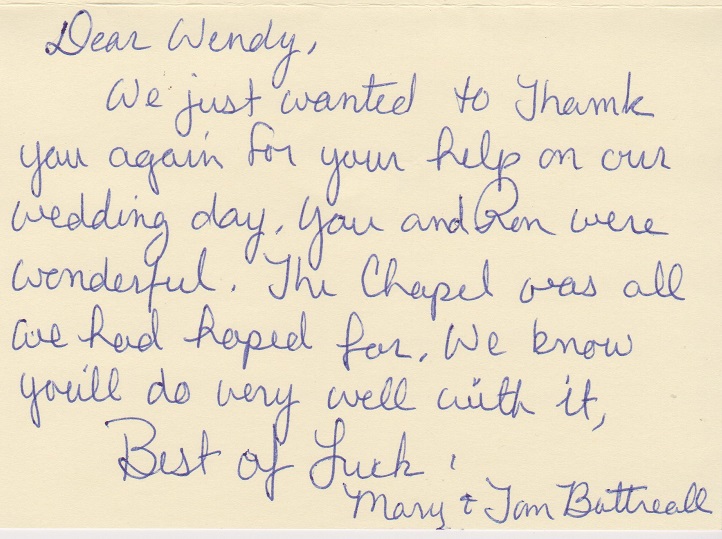 Dear Wendy,
We just wanted to Thank
you again for your help on our
wedding day. You and Ron were
wonderful. The Chapel was all
we had hoped for. We know
you'll do very well with it,
Best of Luck!
Mary & Tom Buttreall